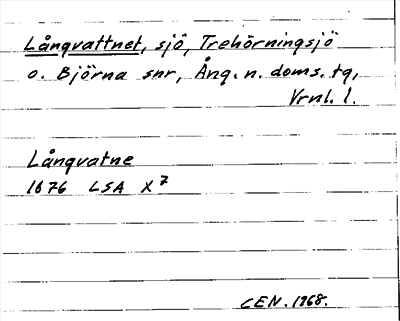 Långvattnet, sjö, Trehörningsjö
o. Björna snr, Ång. n. doms. tg,
Vrnl. l.
Långvatne
1676 LSA X 7
CEN. 1968.